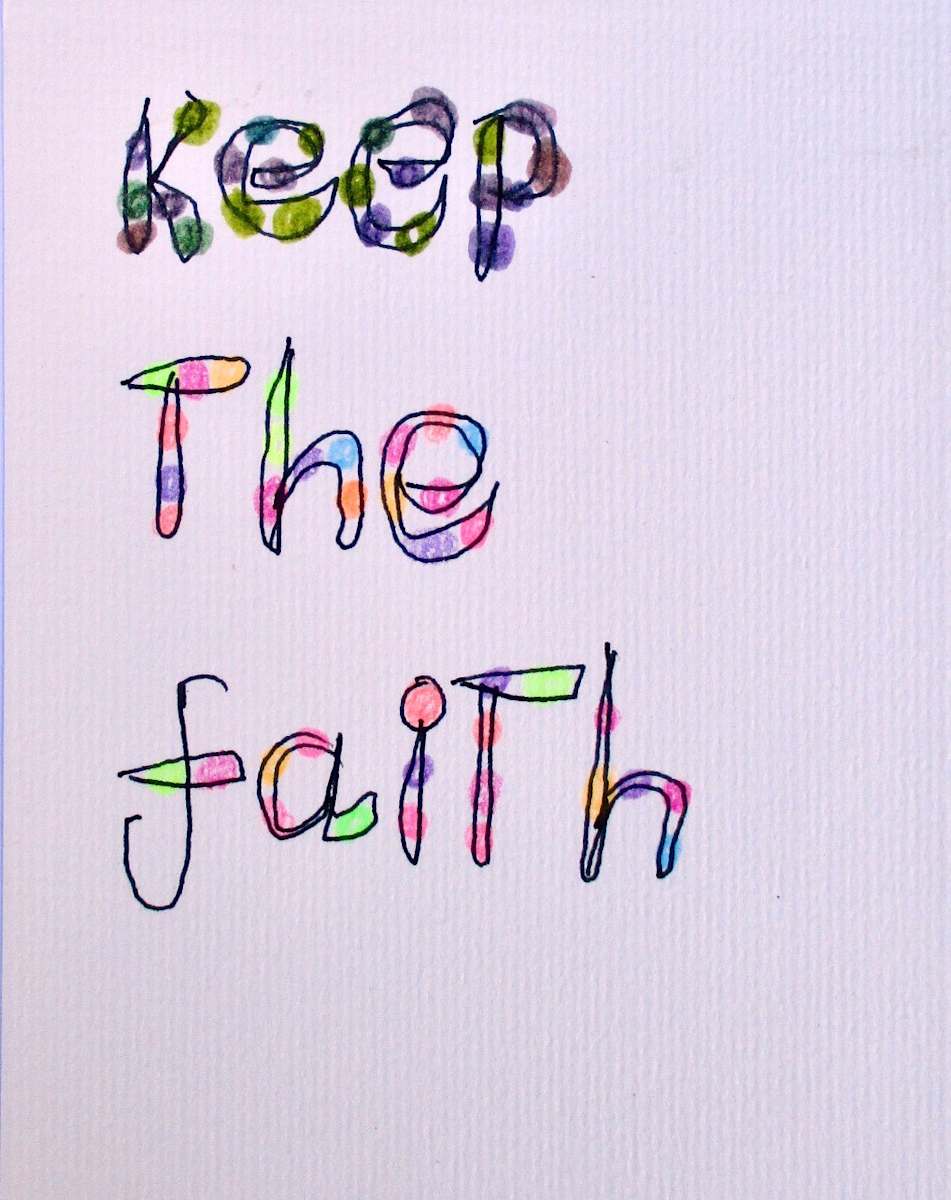 Keep
The
faiTh